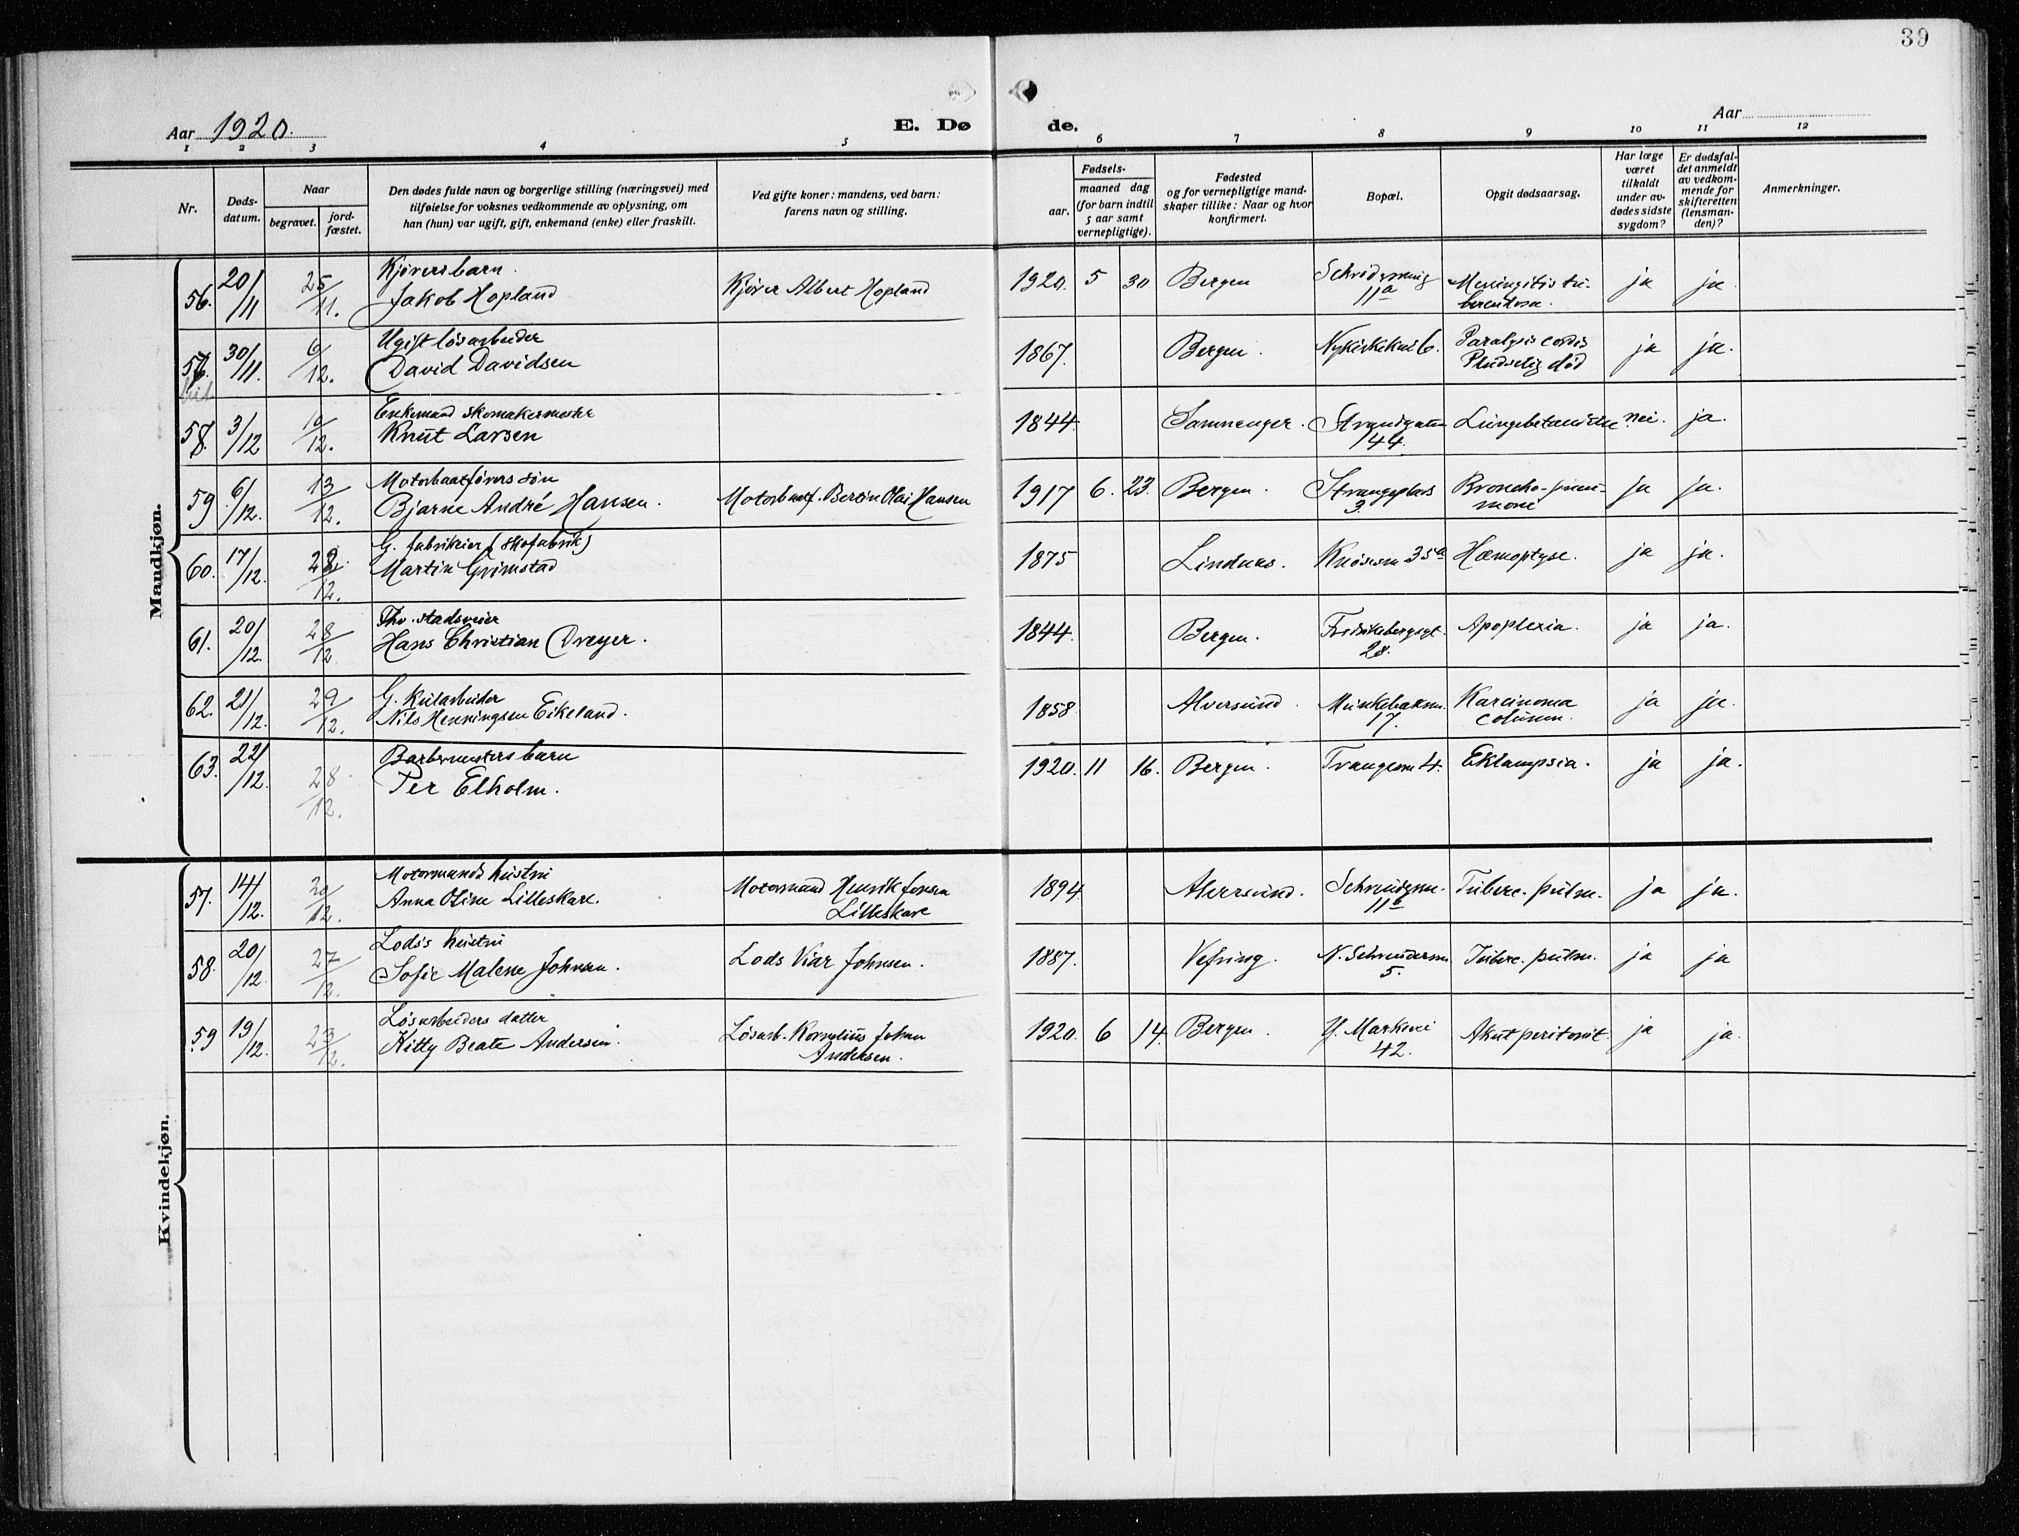 39
Aar 1920.
E. Dø
de.
Aar
1 2 3 4 5 6 7 8 9 10 11 12
Nr.
Døds-
datum.
Naar
begravet.
jord-
fæstet.
Den dødes fulde navn og borgerlige stilling (næringsvei) med
tilføielse for voksnes vedkommende av oplysning, om
han (hun) var ugift, gift, enkemand (enke) eller fraskilt.
Ved gifte koner: mandens, ved barn:
farens navn og stilling.
Fødsels-
aar.
maaned dag
(for barn indtil
5 aar samt
vernepligtige).
Fødested
og for vernepligtige mand-
skaper tillike: Naar og hvor
konfirmert.
Bopæl.
Opgit dødsaarsag.
Har læge
været
tilkaldt
under av-
dødes sidste
sygdom?
Er dødsfal-
det anmeldt
av vedkom-
mende for
skifteretten
(lensman-
den)?
Anmerkninger.
Mandkjøn.
56. 20/11 25/11. Kjørers barn
Jakob Hopland
Kjører Albert Hopland
1920. 5 30 Bergen
11a
Meningitis tu-
berculosa.
ja ja
57. 30/11. 6/12. Ugift løsarbeider
David Davidsen
1867. Bergen. 6.
Paralysis cordis
Pludselig død
ja ja.
58. 3/12 10/12. Enkemand skomakermester
Knut Larsen
1844. Samnanger. Strandgaten
44.
nei. ja.
59. 6/12. 13/12. Motorbaatførers søn
Bjarne André Hansen.
Motorbaatf. Bertin Olai Hansen
1917 6. 23. Bergen. Strangeplads
3.
Broncho-pneu-
moni
ja ja.
60. 17/12. 22/12. G. fabrikeier (skofabrik)
Martin Grimstad
1875 Lindaas. Knøsesm 35a Hæmoptyse. ja ja.
61. 20/12. 28/12
Hans Christian Dreyer.
1844. Bergen. Fredriksbergsgt.
28.
Apoplexia. ja ja.
62. 21/12. 29/12. G. kularbeider
Nils Henningsen Eikeland.
1858. Alversund.
17.
Karcinoma
ja ja.
63. 22/12. 28/12. Barbermesters barn
Per Elholm.
1920. 11 16. Bergen. 4. Eklampsia. ja ja.
Kvindekjøn.
57. 14/12. 20/12. Motormands hustru
Anna Oline Lilleskare.
Motormand Henrik Jonsen
Lilleskare
1894. Alversund.
11b
Tuberc. pulm. ja ja.
58. 20/12. 27/12. Lods's hustru
Sofie Malene Johnsen.
Lods Johnsen.
1887. Vefring.
5.
Tuberc. pulm. ja ja
59 19/12. 23/12. Løsarbeiders datter
Kitty Beate Andersen.
Løsarb. Kornelius Johan
Andersen.
1920. 6 14. Bergen. Markevei
42.
Akut peritonit. ja ja.